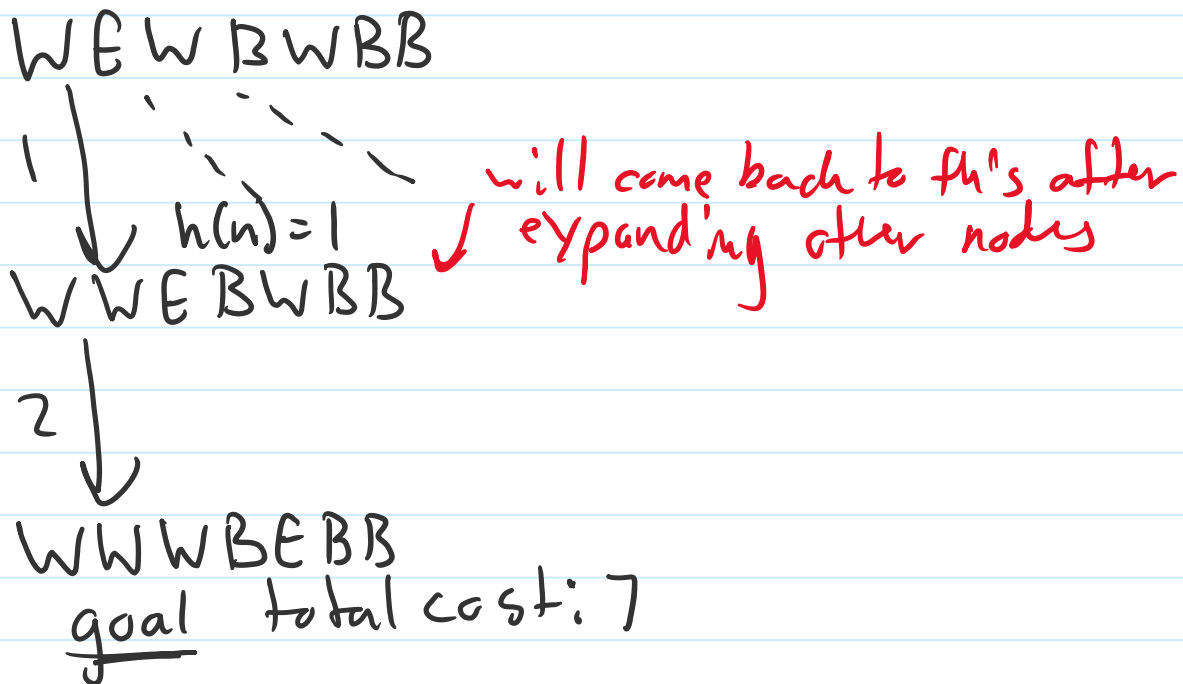 W E W B W B B
1
will come back to this after
h(n) = 1
expanding other nodes
W W E B W B B
2
W W W B E B B
goal total cost: 7